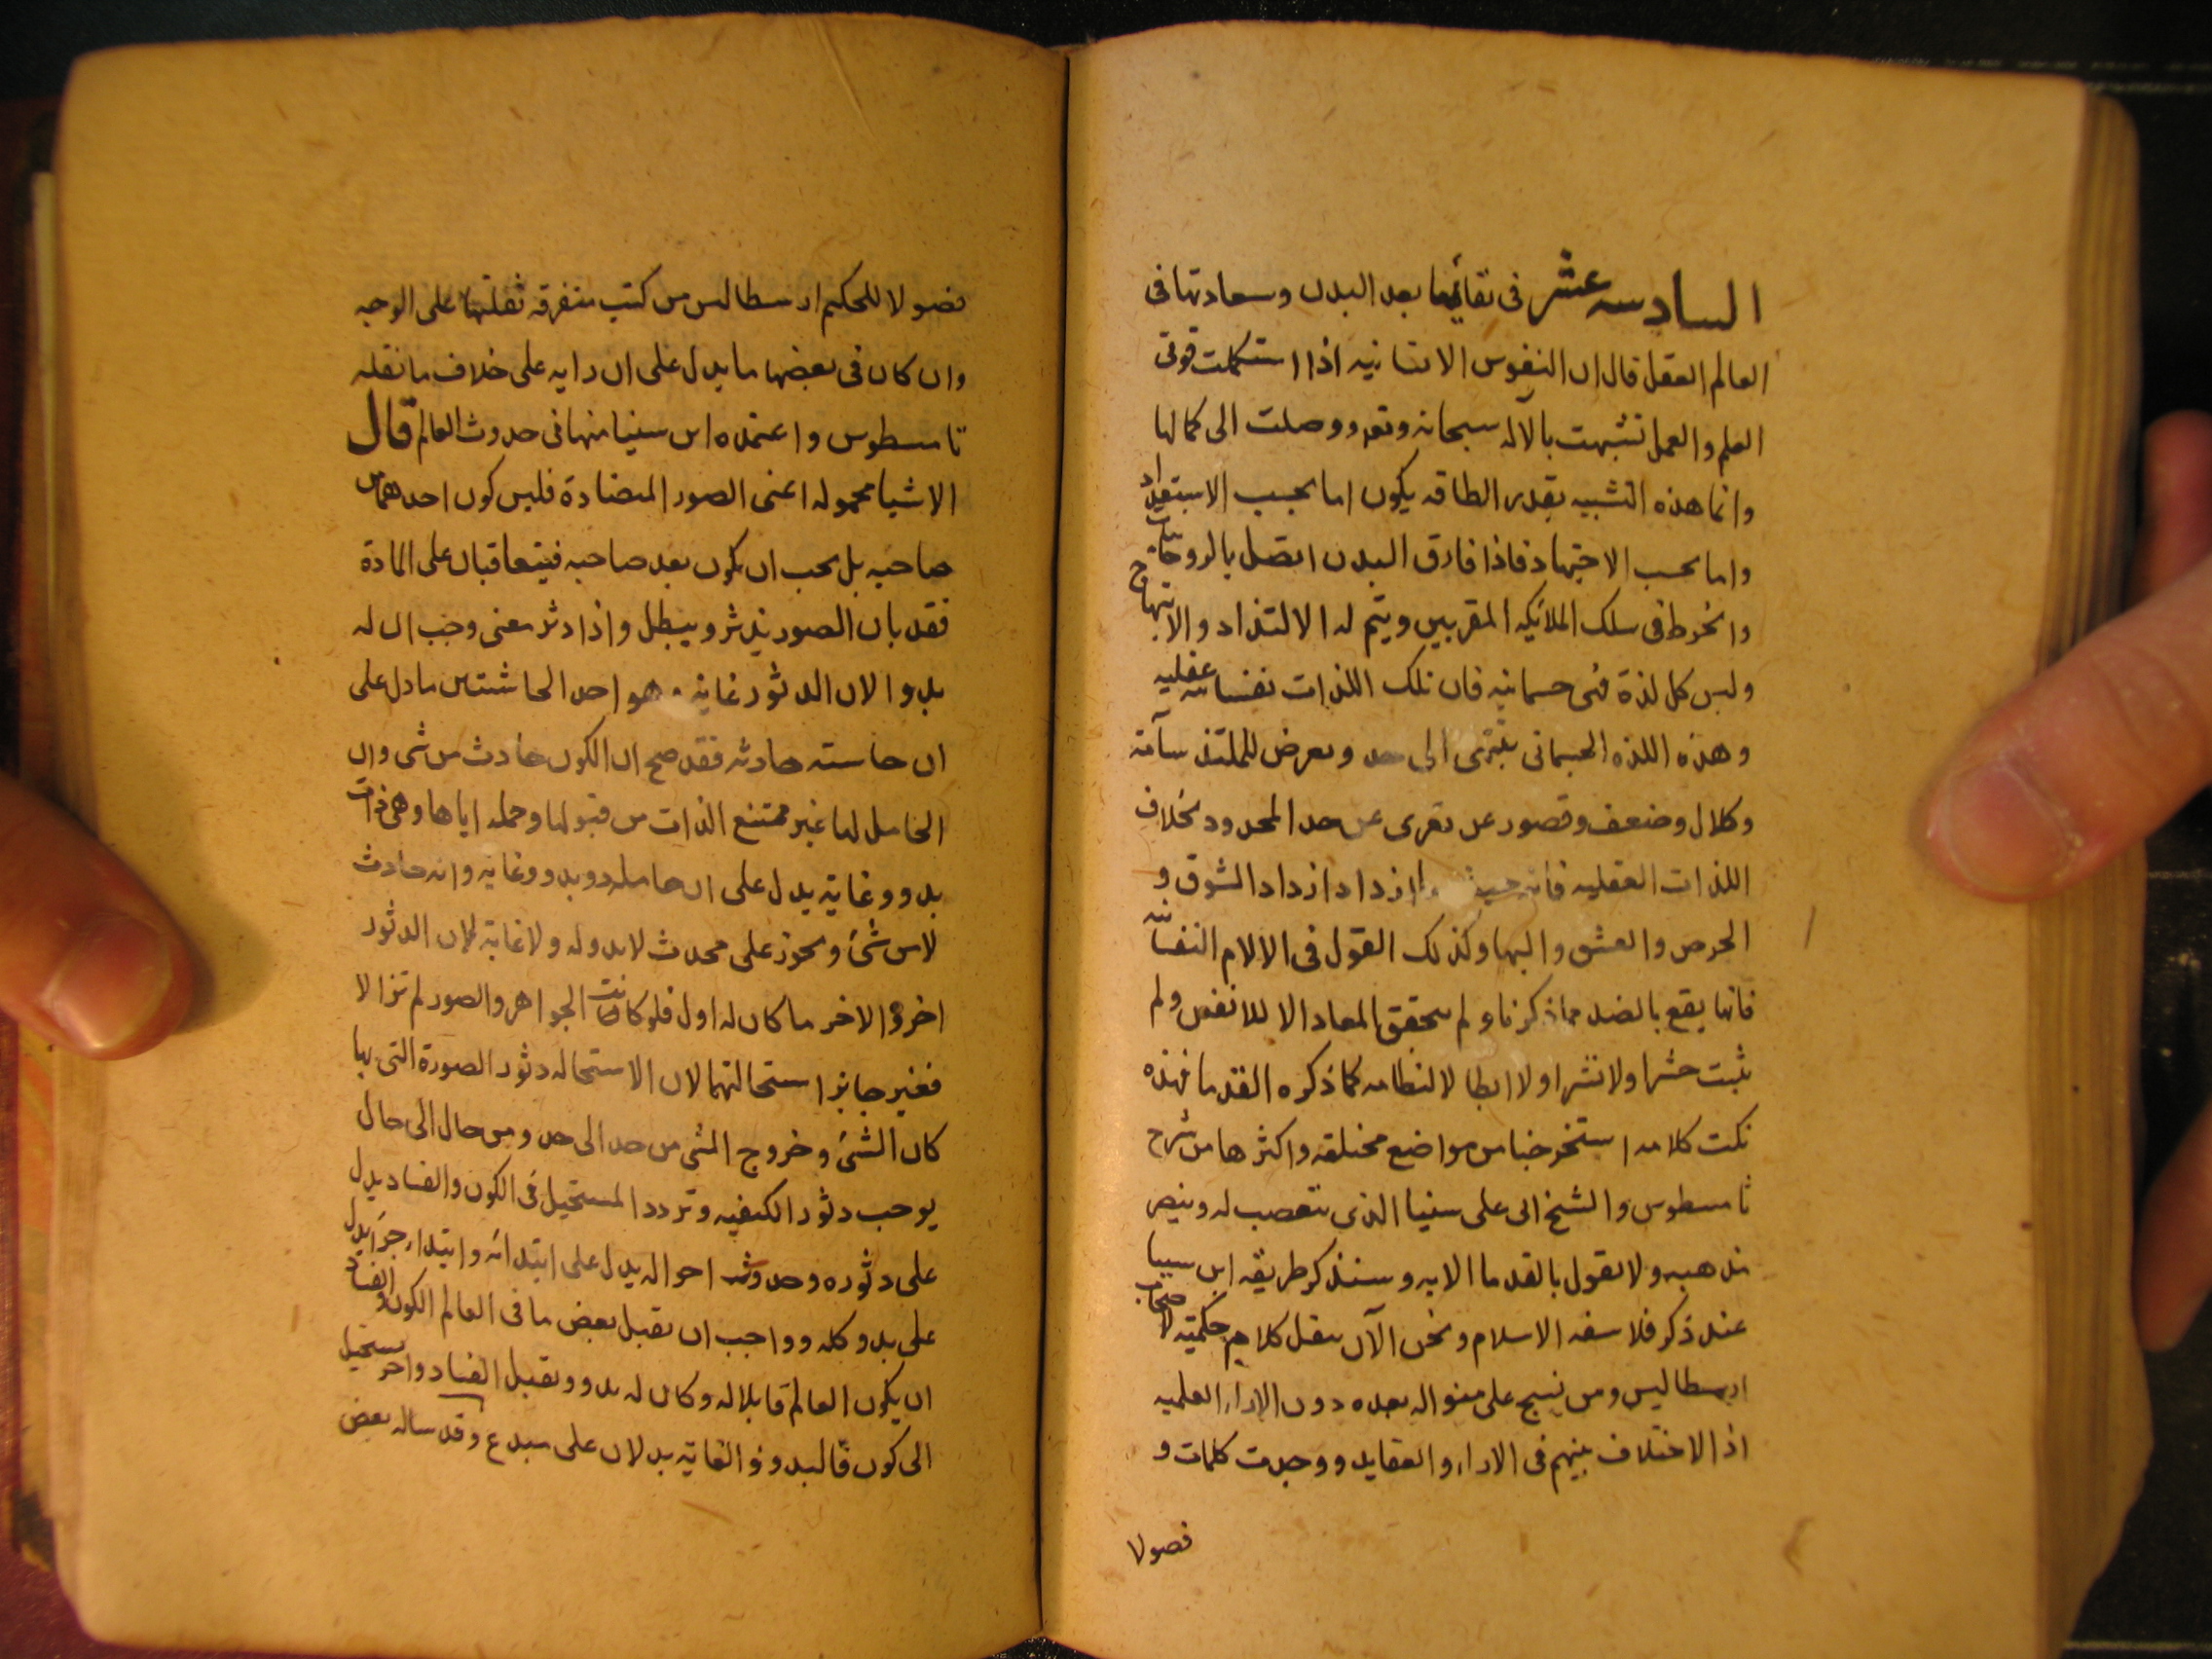 السادسه عشر فى بقائها بعد البدن وسعادتها فى
العالم العقل قال ان النفوس الانسانيه اذا استكملت قوتى
العلم والعمل تشبهت بالاله سبحانه وتعه ووصلت الى كمالها
وانما هذه التشبيه بقدر الطاقه يكون اما بحسب الاستعداد
واما بحسب الاجتهاد فاذا فارق البدن اتصل بالروحانيات
وانخرط فى سلك الملائكه المقربين ويتم له الالتذاذ والابتهاج
وليس كل لذة فهى جسمانيه فان تلك اللذات نفسانيه عقليه
وهذه اللذه الجسمانى ينتهى الى حد ويعرض للملتذ سآمه
وكلال وضعف وقصور عن تعدى عن حد المحدود بخلاف
اللذات العقليه فانه حيث ازداد ازداد الشوق و
الحرص والعشق واليها وكذلك القول فى الالام النفسانيه
فانها يقع بالضد مما ذكرنا ولم يحقق المعاد الا للانفس ولم
يثبت حشرا ولا نشرا ولا ابطالا لنظامه كما ذكره القدما فهذه
نكت كلامه استخرجنا من مواضع مختلقه واكثرها من شرح
ثامسطوس والشيخ ابى على سنيا الذى تتعصب له وينصر
مذهبه ولا يقول بالقدما الا به وسنذكر طريقه ابن سينا
عند ذكر فلاسفه الاسلام ونحن الآن ننقل كلام حكميه لاصحاب
ارسطاليس ومن نسج على منواله بعده دون الاراء العلميه
اذ الاختلاف بينهم فى الاراء والعقايد ووجدت كلمات و
فصولا
فصولا للحكيم ارسطاليس من كتب متفرقه نقلتها على الوجه
وان كان فى بعضها ما يدل على ان رايه على خلاف ما نقله
ثامسطوس واعتمده ابن سنيا منها فى حدوث العالم قال
الاشيا محموله اعنى الصور المتضادة فليس كون احدهما من
صاحبه بل يجب ان يكون بعد صاحبه فيتعاقبان على المادة
فقد بان الصور يدثر ويبطل واذا دثر معنى وجب ان له
بدوا لان الدثور غايه وهو احد الحاشتين ما دل على
ان جاسته حادثه فقد صح ان الكون حادث من شى وان
الحامل لها غير ممتنع الذات من قبولها وحمله اياها وهى ذات
بدو وغاية يدل على ان حامله ذو بدو وغايه وانه حادث
لا من شئ ويجوز على محدث لا بدو له ولا غاية لان الدثور
اخر والاخر ما كان له اول فلو كانت الجواهر والصور لم تزالا
فغير جايز استحالتهما لان الاستحاله دثور الصورة التى بها
كان الشئ وخروج الشى من حد الى حد ومن حال الى حال
يوجب دثور الكيفيه وتردد المستحيل فى الكون والفساد يدل
على دثوره وحدوث احواله يدل على ابتدائه وابتداء جزء يدل
على بدو كله وواجب ان يقبل بعض ما فى العالم الكون والفساد
ان يكون العالم قابلا له وكان له بدو ويقبل الفساد واخر يستحيل
الى كون فالبدو والغاية يدلان على مبدع وقد ساله بعض